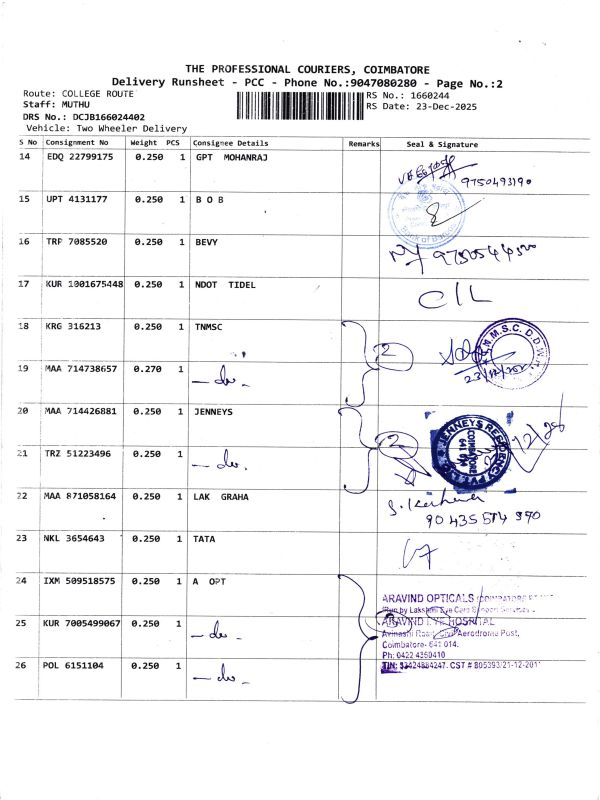 THE PROFESSIONAL COURIERS, COIMBATORE
Delivery Runsheet - PCC - Phone No.:9047080280 - Page No.:2
Route: COLLEGE ROUTE
RS No.: 1660244
Staff: MUTHU
RS Date: 23-Dec-2025
DRS No.: DCJB166024402
Vehicle: Two Wheeler Delivery
S No Consignment No Weight PCS Consignee Details Remarks Seal & Signature
14 EDQ 22799175 0.250 1 GPT MOHANRAJ
9750493190
15 UPT 4131177 0.250 1 B O B
Bank of Baroda
16 TRP 7085520 0.250 1 BEVY
17 KUR 1001675448 0.250 1 NDOT TIDEL
18 KRG 316213 0.250 1 TNMSC
2
19 MAA 714738657 0.270 1 — do -
20 MAA 714426881 0.250 1 JENNEYS
2
JENNEYS RESIDENCY PVT LTD
COIMBATORE
641 014
21 TRZ 51223496 0.250 1 — do -
22 MAA 871058164 0.250 1 LAK GRAHA
90435 574 990
23 NKL 3654643 0.250 1 TATA
24 IXM 509518575 0.250 1 A OPT
ARAVIND OPTICALS
(Run by Lakshmi Eye Care
25 KUR 7005499067 0.250 1 — do -
ARAVIND EYE HOSPITAL
Avinashi Road, Civil Aerodrome Post,
Coimbatore- 641 014.
26 POL 6151104 0.250 1 — do -
Ph: 0422 4350410
TIN: 33424884247. CST # 805393/21-12-2011